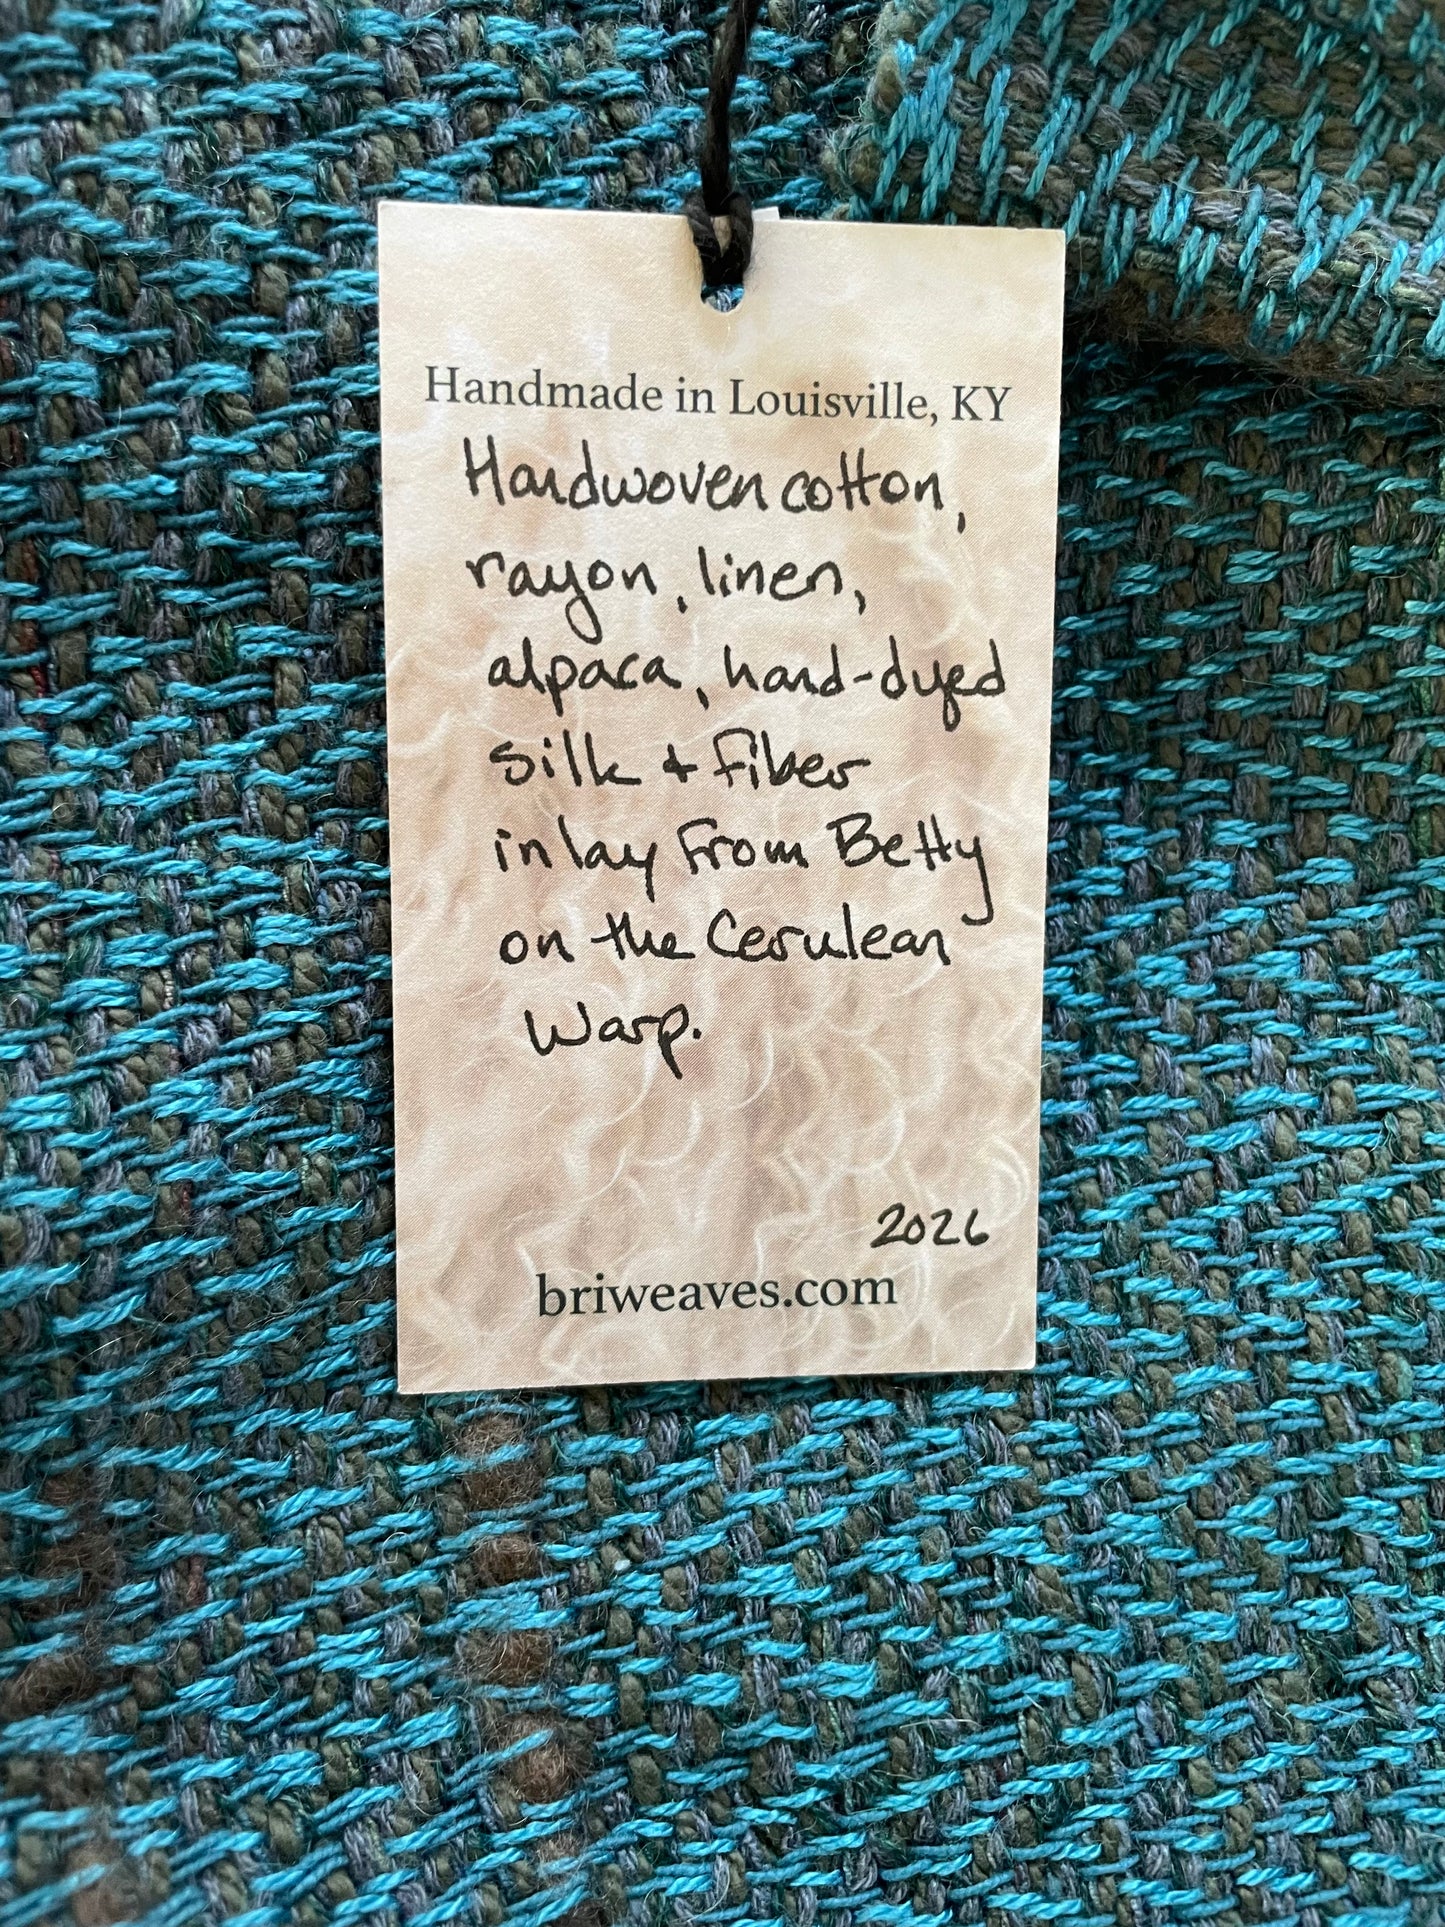 Handmade in Louisville, KY
Handwoven cotton,
rayon, linen,
alpaca, hand-dyed
silk + fiber
inlay from Betty
on the Cerulean
Warp.
2026
briweaves.com